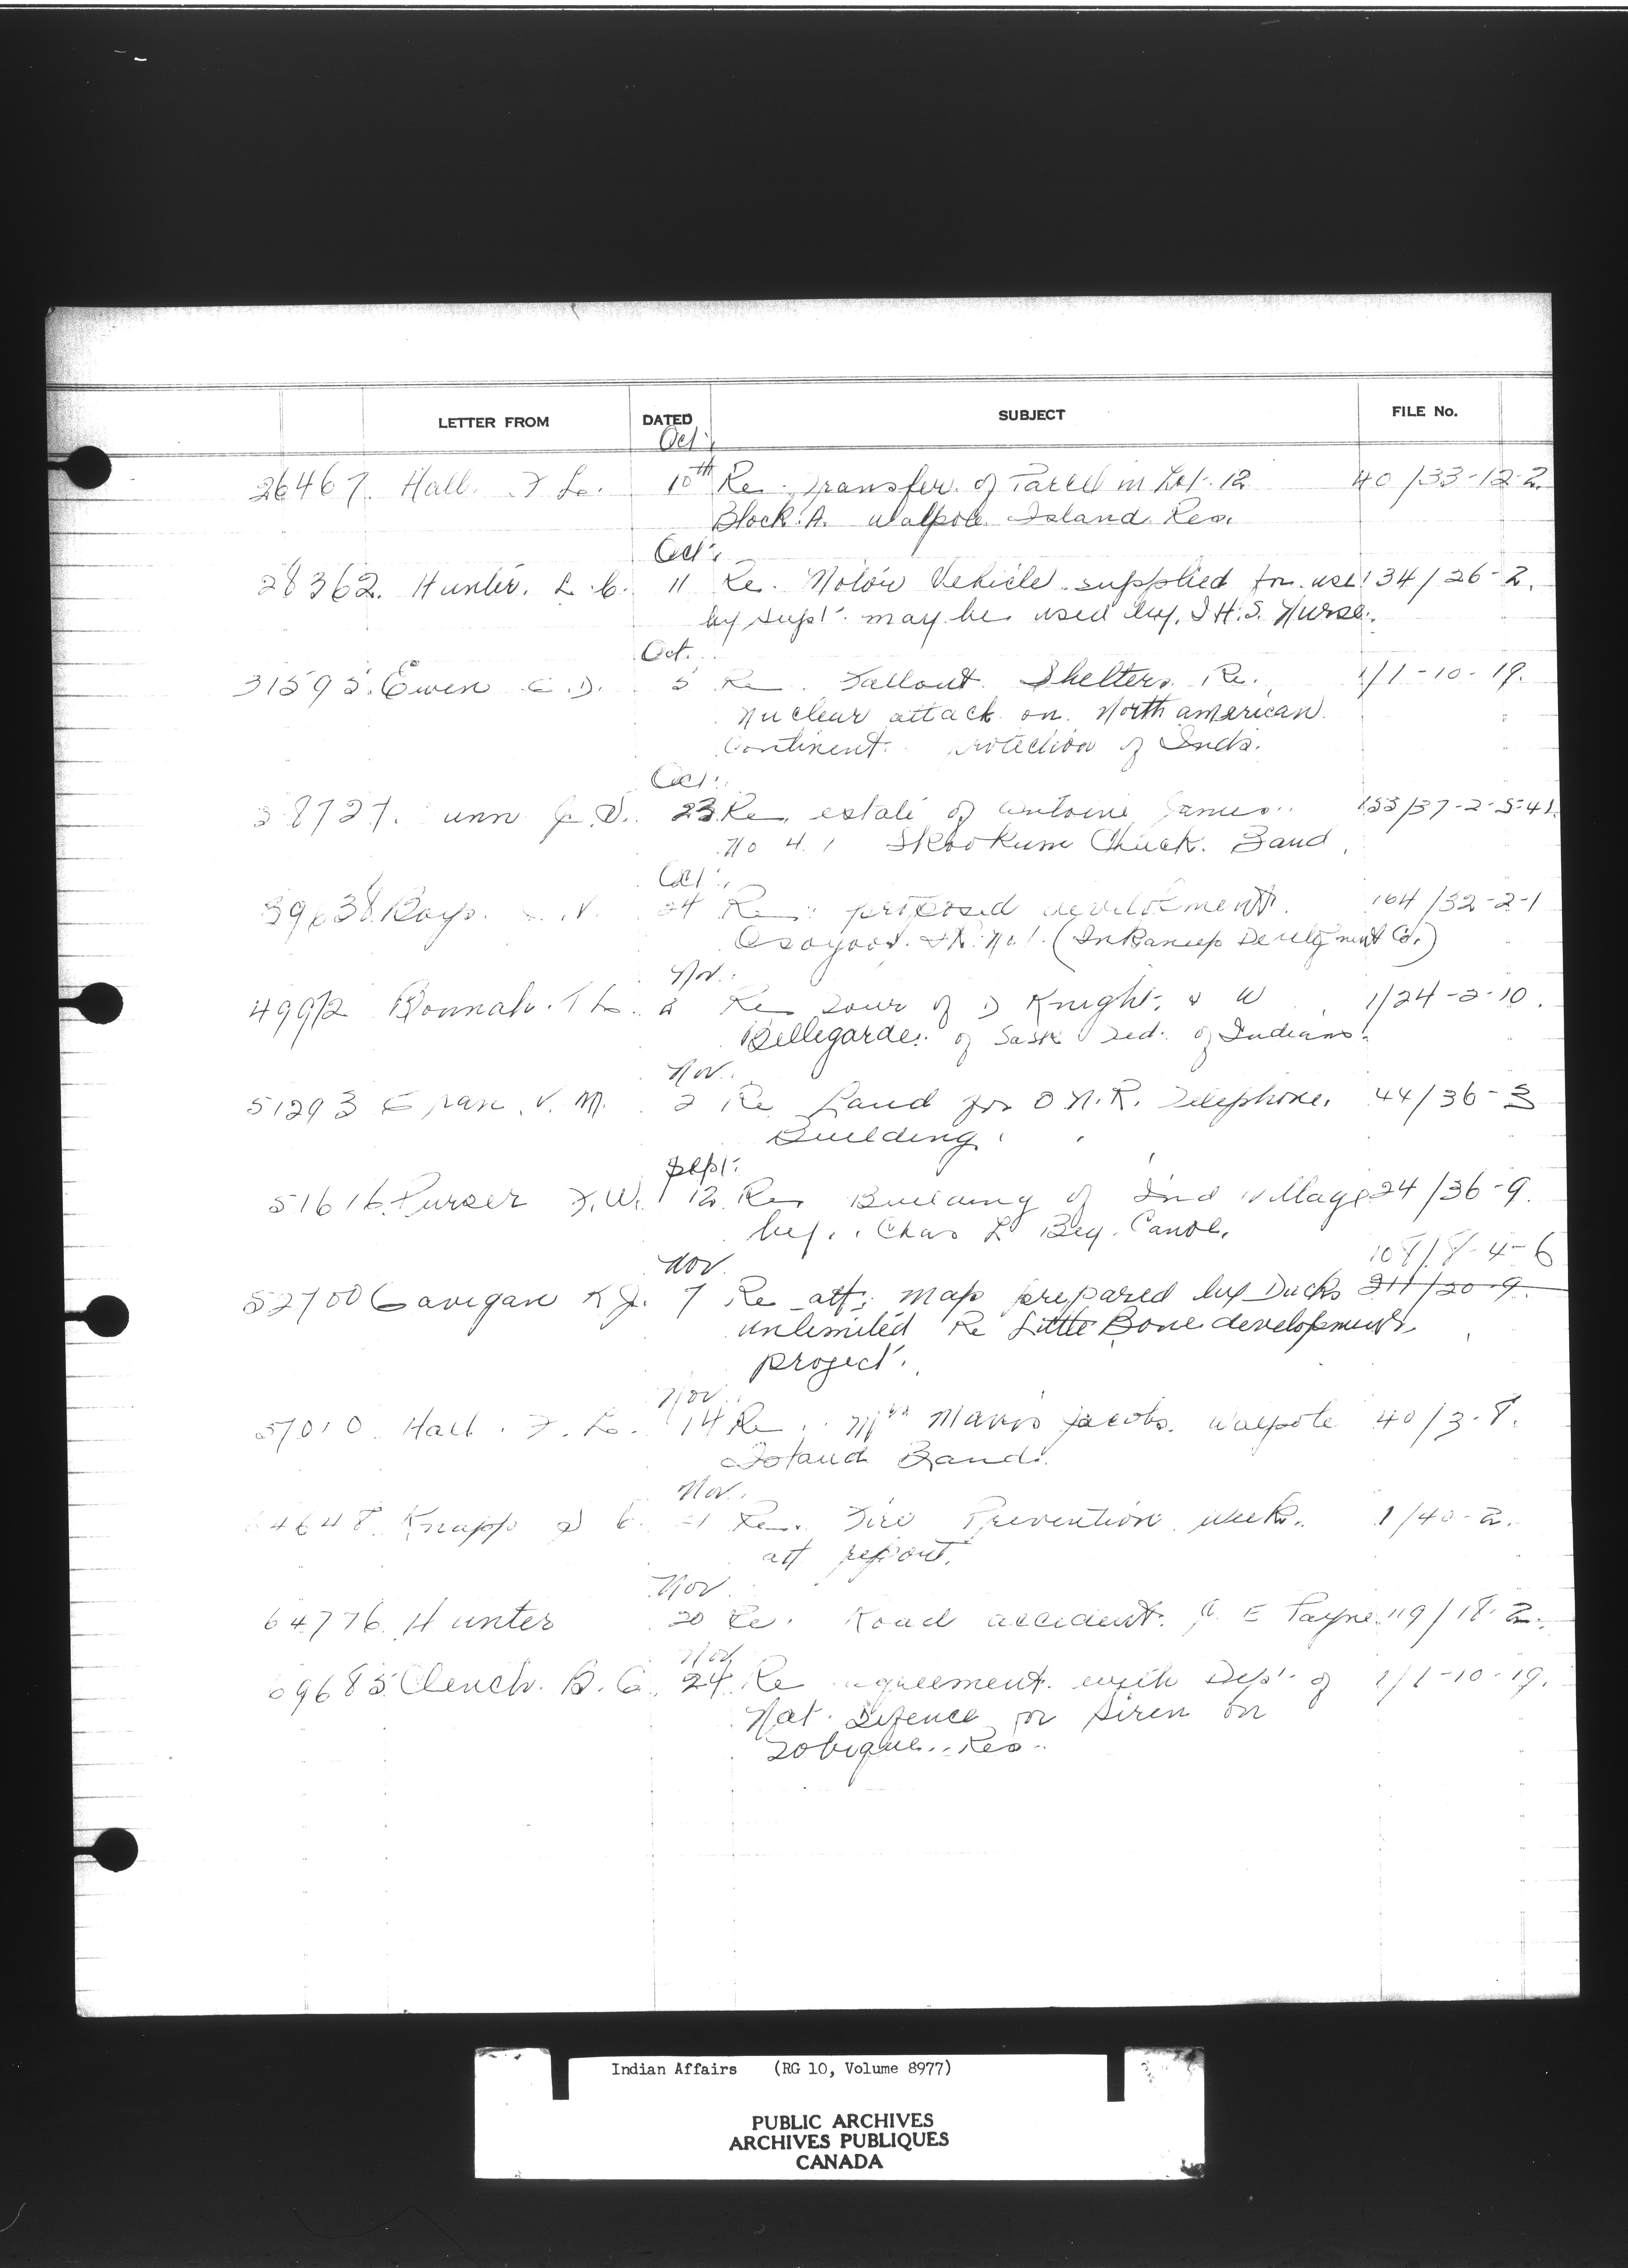 LETTER FROM DATED SUBJECT FILE No.
Oct.
26467. Hall. F. L. 10th Re. Transfer. of Parcel in Lot. 12 40/33-12-2.
Block. A. Walpole Island Res.
Oct.
28362. Hunter. L. C. 11 Re. Motor Vehicle supplied for use 134/26-2.
by Supt. may be used by. I.H.S. Nurse.
Oct.
31595. Ewen C.D. 5 Re. Fallout Shelters Re. 1/1-10-19.
Nuclear attack on North american
Continent. protection of Inds.
Oct.
38727. unn J. D. 23 Re. estate of Antoine James 153/37-2-5-41.
No 41 Skookum Chuck. Band
Oct.
39638 Boys. N. 24 Re. proposed development 164/32-2-1
Osoyoos. I.R. No 1. (Inkaneep Develgment Co.)
Nov.
49972 Bonnah. T L. 2 Re Tour of D Knight. & W 1/24-2-10.
Bellegarde. of Sask Fed. of Indians.
Nov.
51293 V. M. 2 Re Land for O.N.R. Telephone. 44/36-3
Building.
Sept.
51616. Purser F.W. 12. Re. Building of Ind village 24/36-9.
by. Chas L Beg. Canoe.
108/8-4-6
Nov
52700 Gavigan K J. 7 Re att; map prepared by Ducks 211/20-9.
unlimited Re Little Bone development
project.
Nov.
57010 Hall. F. L. 14 Re. Mrs Mavis Jacobs. Walpole 40/3-8.
Island Band.
Nov.
64648. Knapp C. 21 Re. Fire Prevention week. 1/40-2.
att report.
Nov.
64776. Hunter 20 Re. Road accident. E Payne. 119/18-2.
Nov
69685 Clench. B. C. 24 Re agreement with Dept of 1/1-10-19.
Nat. Defence for Siren on
Tobique. Res.
Indian Affairs (RG 10, Volume 8977)
PUBLIC ARCHIVES
ARCHIVES PUBLIQUES
CANADA